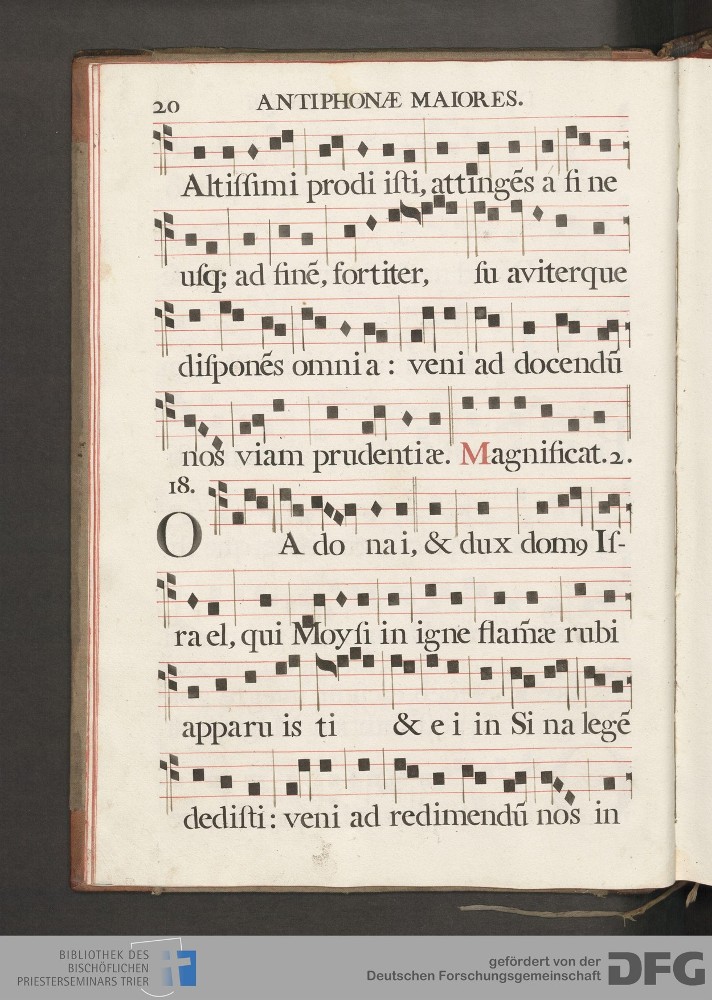 20 ANTIPHONÆ MAIORES.
Altiſſimi prodi iſti, attingẽs a fi ne
uſq; ad finẽ, fortiter, ſu aviterque
diſponẽs omnia: veni ad docendũ
nos viam prudentiæ. Magnificat.2.
18.
O A do nai, & dux domꝰ Iſ-
rael, qui Moyſi in igne flam̃æ rubi
apparu is ti & e i in Si na legẽ
dediſti: veni ad redimendũ nos in
BIBLIOTHEK DES
BISCHÖFLICHEN
PRIESTERSEMINARS TRIER
gefördert von der
Deutschen Forschungsgemeinschaft
DFG